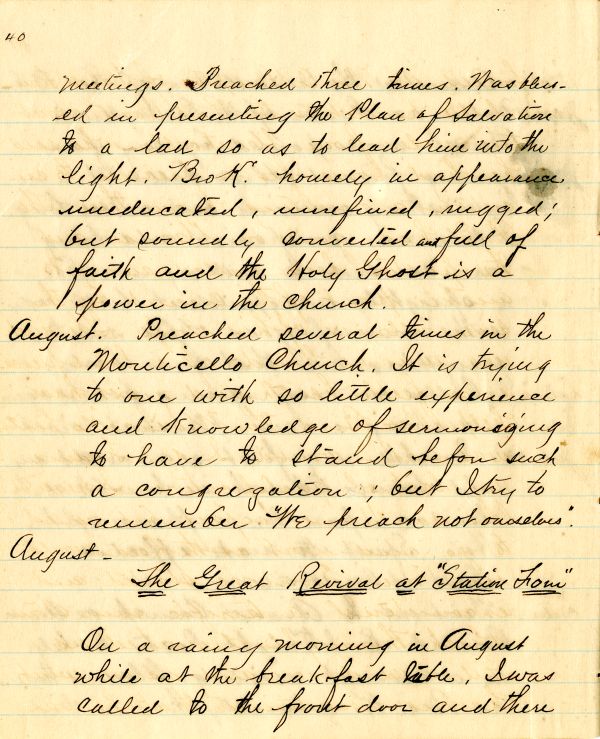 40
meetings. Preached three times. Was bless-
ed in presenting the Plan of Salvation
to a lad so as to lead him into the
light. Bro K. homely in appearance
uneducated, unrefined, rugged;
but soundly converted and full of
faith and the Holy Ghost is a
power in the church.
August. Preached several times in the
Monticello Church. It is trying
to one with so little experience
and knowledge of sermonizing
to have to stand before such
a congregation; but I try to
remember "We preach not ourselves".
August -
The Great Revival at "Station Four"
On a rainy morning in August
while at the breakfast table, I was
called to the front door and there